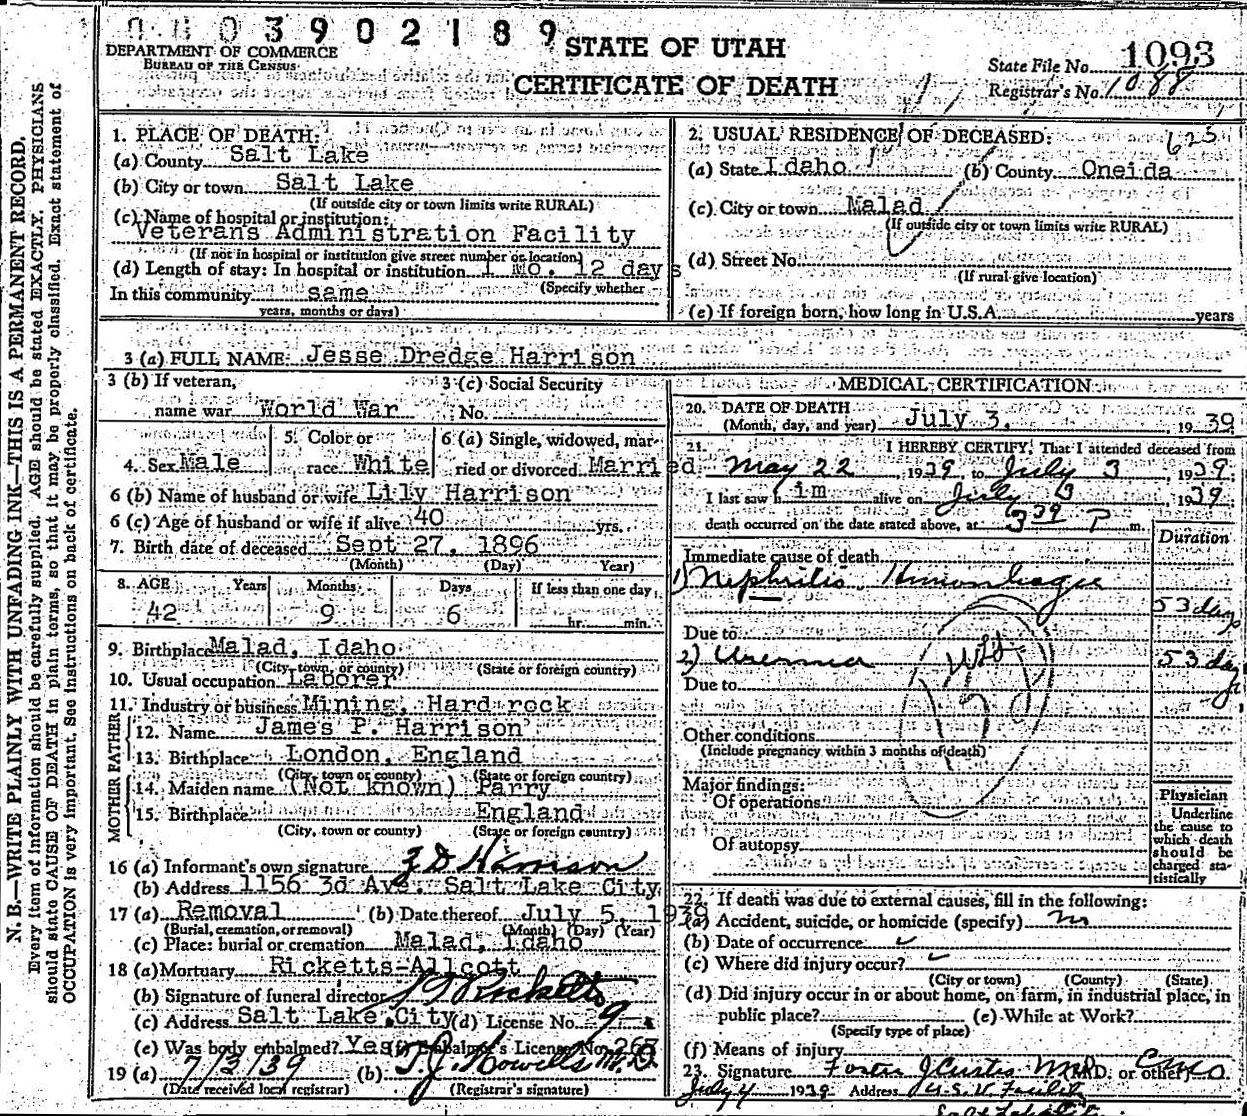 3902189
DEPARTMENT OF COMMERCE
BUREAU OF THE CENSUS
STATE OF UTAH
CERTIFICATE OF DEATH
State File No. 1093
Registrar's No. 1088
N. B.—WRITE PLAINLY WITH UNFADING INK—THIS IS A PERMANENT RECORD.
Every item of information should be carefully supplied. AGE should be stated EXACTLY. PHYSICIANS
should state CAUSE OF DEATH in plain terms, so that it may be properly classified. Exact statement of
OCCUPATION is very important. See instructions on back of certificate.
1. PLACE OF DEATH:
(a) County Salt Lake
(b) City or town Salt Lake
(If outside city or town limits write RURAL)
(c) Name of hospital or institution:
Veterans Administration Facility
(If not in hospital or institution give street number or location)
(d) Length of stay: In hospital or institution 1 Mo. 12 days
(Specify whether
In this community same
years, months or days)
2. USUAL RESIDENCE OF DECEASED: 625
(a) State Idaho (b) County Oneida
(c) City or town Malad
(If outside city or town limits write RURAL)
(d) Street No.
(If rural give location)
(e) If foreign born, how long in U.S.A. years
3 (a) FULL NAME: Jesse Dredge Harrison
3 (b) If veteran, 3 (c) Social Security
name war World War No.
4. Sex Male 5. Color or race White 6 (a) Single, widowed, married or divorced Married
6 (b) Name of husband or wife Lily Harrison
6 (c) Age of husband or wife if alive 40 yrs.
7. Birth date of deceased Sept 27, 1896
(Month) (Day) Year)
8. AGE Years Months Days If less than one day
42 9 6 hr. min.
9. Birthplace Malad, Idaho
(City, town, or county) (State or foreign country)
10. Usual occupation Laborer
11. Industry or business Mining, Hard rock
FATHER
12. Name James P. Harrison
13. Birthplace London, England
(City, town or county) (State or foreign country)
MOTHER
14. Maiden name (Not known) Parry
15. Birthplace England
(City, town or county) (State or foreign country)
16 (a) Informant's own signature Harrison
(b) Address 1156 3d Ave. Salt Lake City
17 (a) Removal (b) Date thereof July 5, 1939
(Burial, cremation, or removal) (Month) (Day) (Year)
(c) Place: burial or cremation Malad, Idaho
18 (a) Mortuary Ricketts-Allcott
(b) Signature of funeral director Ricketts
(c) Address Salt Lake City (d) License No. 9
(e) Was body embalmed? Yes Embalmer's License No. 267
19 (a) 7/3/39 (b) T. J. Howells M. D.
(Date received local registrar) (Registrar's signature)
MEDICAL CERTIFICATION
20. DATE OF DEATH
(Month, day, and year) July 3, 1939
21. I HEREBY CERTIFY, That I attended deceased from
May 22, 1939 to July 3, 1939
I last saw him alive on July 3 1939
death occurred on the date stated above, at 3 39 P m.
Duration
Immediate cause of death
1) Nephritis Hemorrhagic
53 days
Due to
2) Uremia 53 days
Due to
Other conditions
(Include pregnancy within 3 months of death)
Major findings:
Of operations
Of autopsy
Physician
Underline
the cause to
which death
should be
charged sta-
tistically
22. If death was due to external causes, fill in the following:
(a) Accident, suicide, or homicide (specify)
(b) Date of occurrence
(c) Where did injury occur?
(City or town) (County) (State)
(d) Did injury occur in or about home, on farm, in industrial place, in
public place? (e) While at Work?
(Specify type of place)
(f) Means of injury
23. Signature Foster J Curtis M.D. or other)
July 4 1939 Address U.S.V.